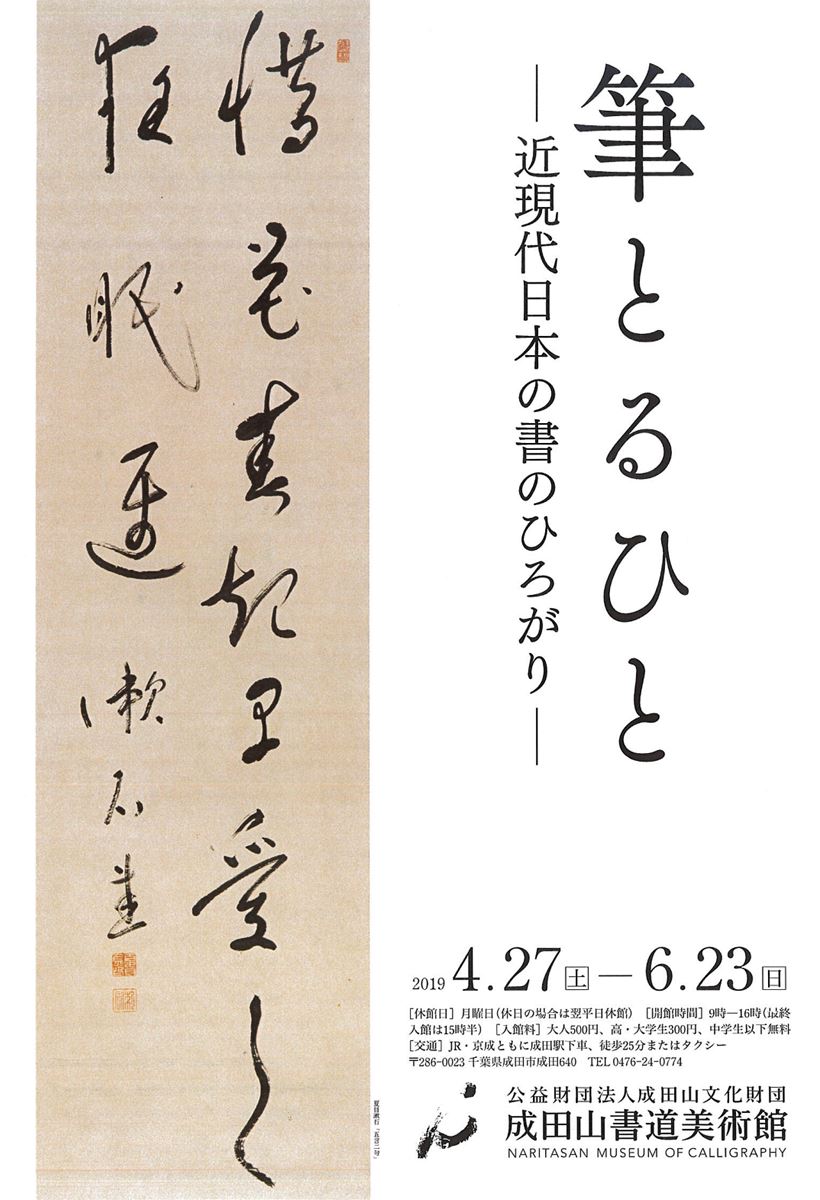 筆とるひと
―近現代日本の書のひろがり―
惜花春起早愛月
夜眠遅 漱石書
夏目漱石「五言二句」
2019 4.27土―6.23日
[休館日] 月曜日(休日の場合は翌平日休館) [開館時間] 9時―16時(最終
入館は15時半) [入館料] 大人500円、高・大学生300円、中学生以下無料
[交通] JR・京成ともに成田駅下車、徒歩25分またはタクシー
〒286-0023 千葉県成田市成田640 TEL 0476-24-0774
公益財団法人成田山文化財団
成田山書道美術館
NARITASAN MUSEUM OF CALLIGRAPHY